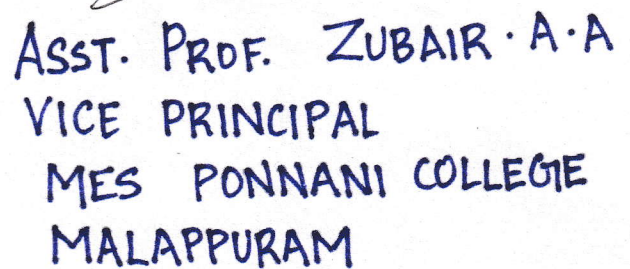 ASST. PROF. ZUBAIR·A·A
VICE PRINCIPAL
MES PONNANI COLLEGE
MALAPPURAM